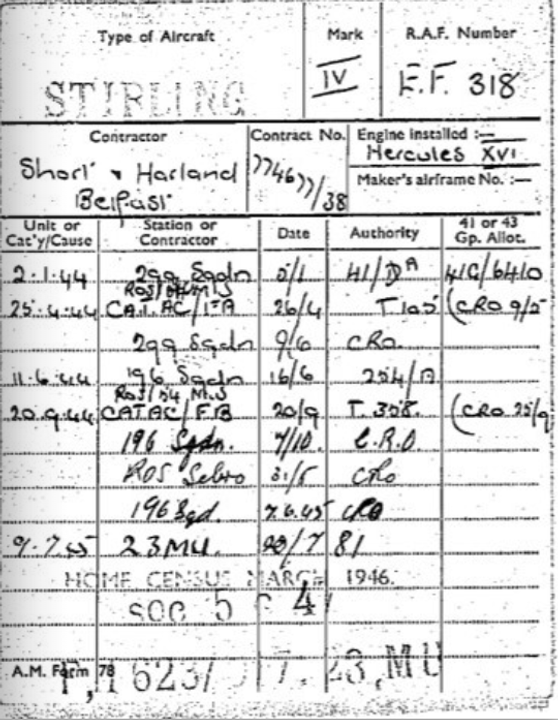 Type of Aircraft Mark R.A.F. Number
STIRLING IV E.F. 318
Contractor Contract No. Engine installed :—
Short & Harland Hercules XVI
Belfast 774677/38 Maker's airframe No. :—
Unit or Cat'y/Cause Station or Contractor Date Authority 41 or 43 Gp. Allot.
2.1.44 299 Sqdn 5/1 41/DA 41G/6410
25.4.44 CAT. AC/ 26/4 (CRO 9/5
299 Sqdn 9/6 CRO
11.6.44 196 Sqdn 16/6 254/A
ROS/54 M.S
20.9.44 CAT AC/FB 20/9 T.358. (CRO 25/9
196 Sqdn. 7/10. C.R.O
ROS Sebro 31/5 CRO
196 Sqd. 7.6.45 CRO
9.7.45 23 MU. 20/7 81
HOME CENSUS MARCH 1946.
SOC 5 4
A.M. Form 78 23 MU